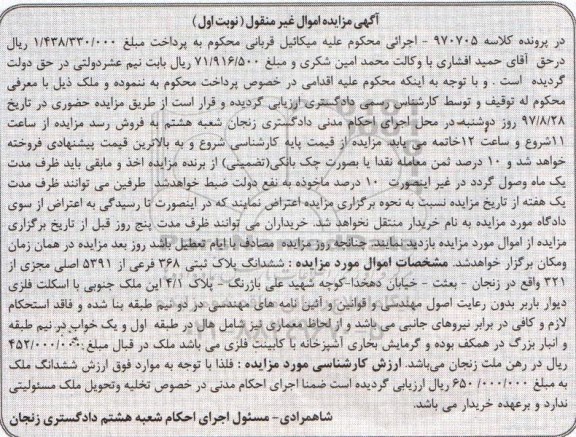 آگهی مزایده اموال غیر منقول (نوبت اول)
در پرونده کلاسه ۹۷۰۷۰۵ - اجرائی محکوم علیه میکائیل قربانی محکوم به پرداخت مبلغ ۱/۴۳۸/۳۳۰/۰۰۰ ریال
درحق آقای حمید افشاری با وکالت محمد امین شکری و مبلغ ۷۱/۹۱۶/۵۰۰ ریال بابت نیم عشردولتی در حق دولت
گردیده است . و با توجه به اینکه محکوم علیه اقدامی در خصوص پرداخت محکوم به ننموده و ملک ذیل با معرفی
محکوم له توقیف و توسط کارشناس رسمی دادگستری ارزیابی گردیده و قرار است از طریق مزایده حضوری در تاریخ
۹۷/۸/۲۸ روز دوشنبه در محل اجرای احکام مدنی دادگستری زنجان شعبه هشتم به فروش رسد مزایده از ساعت
۱۱شروع و ساعت ۱۲خاتمه می یابد. مزایده از قیمت پایه کارشناسی شروع و به بالاترین قیمت پیشنهادی فروخته
خواهد شد و ۱۰ درصد ثمن معامله نقدا یا بصورت چک بانکی(تضمینی) از برنده مزایده اخذ و مابقی باید ظرف مدت
یک ماه وصول گردد در غیر اینصورت ۱۰ درصد ماخوذه به نفع دولت ضبط خواهدشد. طرفین می توانند ظرف مدت
یک هفته از تاریخ مزایده نسبت به نحوه برگزاری مزایده اعتراض نمایند که در اینصورت تا رسیدگی به اعتراض از سوی
دادگاه مورد مزایده به نام خریدار منتقل نخواهد شد. خریداران می توانند ظرف مدت پنج روز قبل از تاریخ برگزاری
مزایده از اموال مورد مزایده بازدید نمایند. چنانچه روز مزایده مصادف با ایام تعطیل باشد روز بعد مزایده در همان زمان
ومکان برگزار خواهدشد. مشخصات اموال مورد مزایده : ششدانگ پلاک ثبتی ۳۶۸ فرعی از ۵۳۹۱ اصلی مجزی از
۳۲۱ واقع در زنجان - بعثت - خیابان دهخدا-کوچه شهید علی بازرنگ - پلاک ۴/۱ این ملک جنوبی با اسکلت فلزی
دیوار باربر بدون رعایت اصول مهندسی و قوانین و آئین نامه های مهندسی در دو نیم طبقه بنا شده و فاقد استحکام
لازم و کافی در برابر نیروهای جانبی می باشد و از لحاظ معماری نیز شامل هال در طبقه اول و یک خواب در نیم طبقه
و انبار بزرگ در همکف بوده و گرمایش بخاری آشپزخانه با کابینت فلزی می باشد ملک در قبال مبلغ ۴۵۲/۰۰۰/۰۰۰
ریال در رهن ملت زنجان می‌باشد. ارزش کارشناسی مورد مزایده : فلذا با توجه به موارد فوق ارزش ششدانگ ملک
به مبلغ ۶۵۰/۰۰۰/۰۰۰ ریال ارزیابی گردیده است ضمنا اجرای احکام مدنی در خصوص تخلیه وتحویل ملک مسئولیتی
ندارد و برعهده خریدار می باشد.
شاهمرادی- مسئول اجرای احکام شعبه هشتم دادگستری زنجان